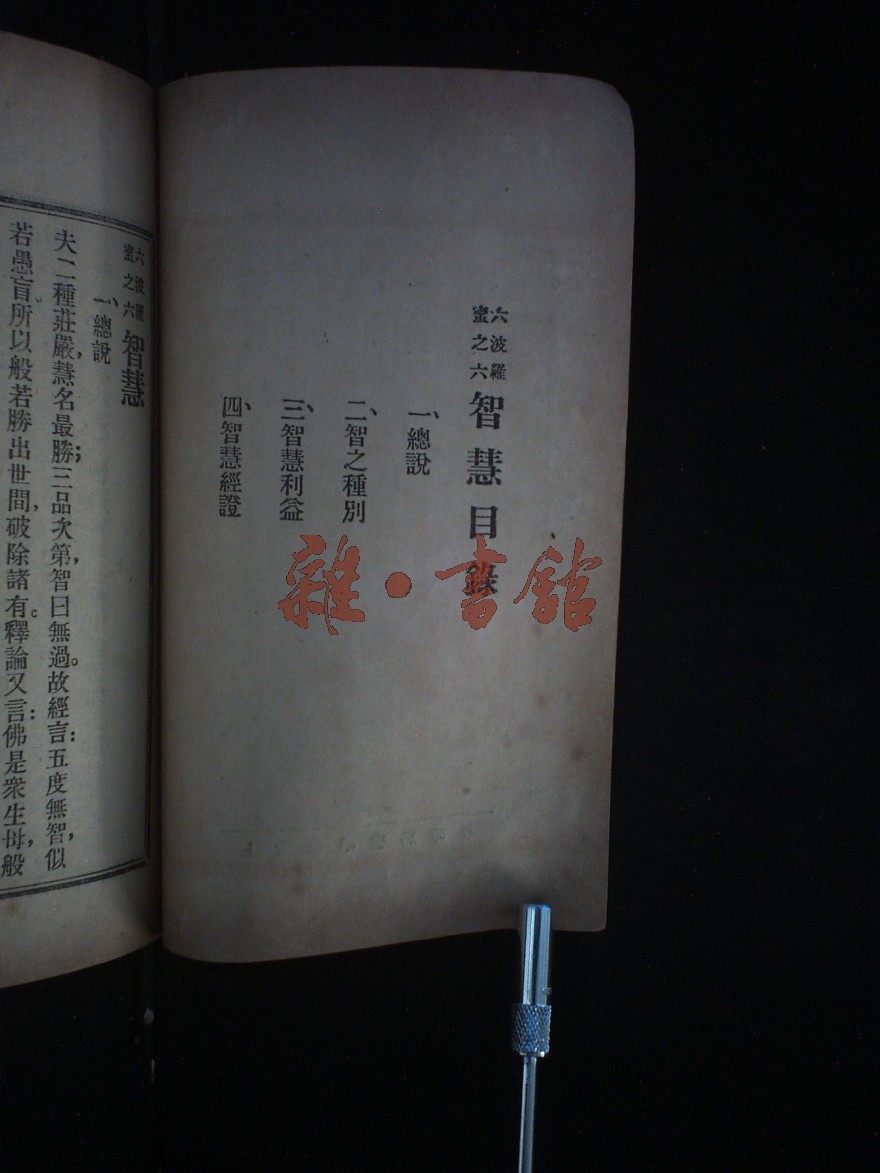 六波羅蜜之六 智慧目錄
一、總說
二、智之種別
三、智慧利益
四、智慧經證
雜·書館
六波羅蜜之六 智慧
一、總說
夫二種莊嚴，慧名最勝；三品次第，智曰無過。故經言：五度無智，似
若愚盲。所以般若勝出世間，破除諸有。釋論又言：佛是衆生母，般